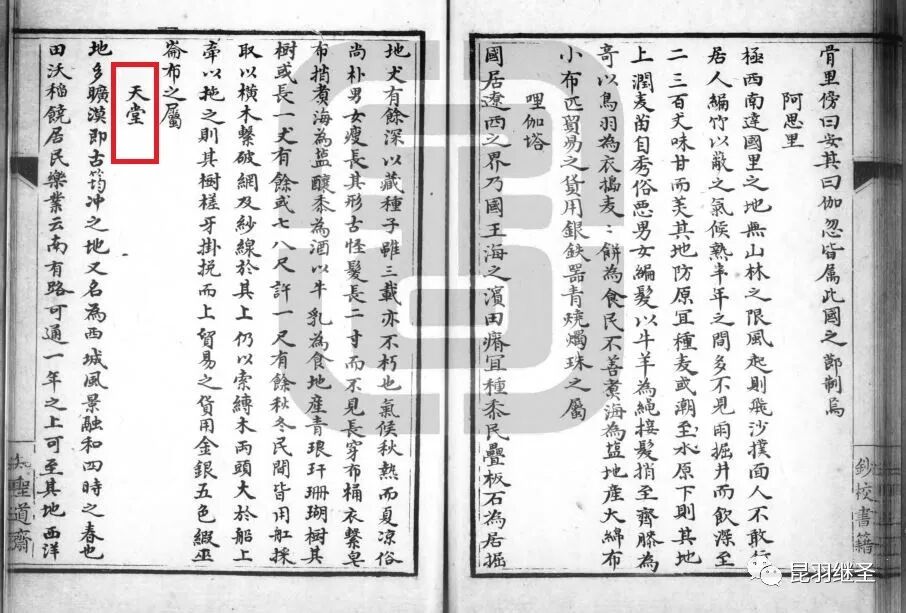 骨里傍曰安其曰伽忽皆属此國之節制焉
阿思里
極西南達國里之地無山林之限風起則飛沙撲面人不敢行
居人編竹以蔽之氣候熱半年之間多不見雨掘井而飲深至
二三百丈味甘而美其地防原宜種麦或潮至水原下則其地
上潤麦苗自秀俗悪男女編髮以牛羊為繩接髮捎至齊膝為
奇以鳥羽為衣搗麦:餅為食民不善煮海為塩地產大綿布
小布匹貿易之貨用銀鉄器青燒燭珠之屬
哩伽塔
國居遼西之界乃國王海之濱田瘠宜種黍民疊板石為居掘
地丈有餘深以藏種子雖三載亦不朽也氣候秋熱而夏凉俗
尚朴男女瘦長其形古怪髮長二寸而不見長穿布桶衣繫皂
布捎煮海為塩釀黍為酒以牛乳為食地産青琅玕珊瑚樹其
樹或長一丈有餘或七八尺許一尺有餘秋冬民間皆用舡採
取以横木繫破網及紗線於其上仍以索縛木两頭人於船上
牽以拖之則其樹槎牙掛挽而上貿易之貨用金銀五色緞巫
崙布之屬
天堂
地多曠漠即古筠冲之地又名為西域風景融和四時之春也
田沃稲饒居民樂業云南有路可通一年之上可至其地西洋
知聖道齋
鈔校書籍
昆羽继圣